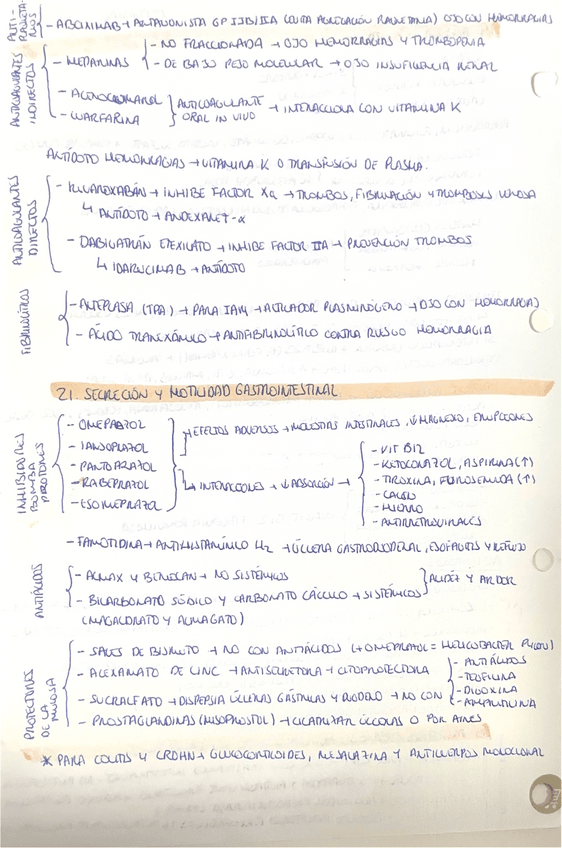 ANTI-PLAQUETARIOS
- ABCIXIMAB → ANTAGONISTA GP IIB/IIIA (EVITA AGREGACIÓN PLAQUETARIA) OJO CON HEMORRAGIAS
ANTICOAGULANTES INDIRECTOS
- HEPARINAS
- NO FRACCIONADA → OJO HEMORRAGIAS Y TROMBOPENIA
- DE BAJO PESO MOLECULAR → OJO INSUFICIENCIA RENAL
- ACENOCUMAROL
- WARFARINA
ANTICOAGULANTE ORAL IN VIVO → INTERACCIONA CON VITAMINA K
ANTÍDOTO HEMORRAGIAS → VITAMINA K O TRANSFUSIÓN DE PLASMA.
ANTICOAGULANTES DIRECTOS
- RIVAROXABÁN → INHIBE FACTOR Xa → TROMBOS, FIBRILACIÓN Y TROMBOSIS VENOSA
↳ ANTÍDOTO → ANDEXANET-α
- DABIGATRÁN ETEXILATO → INHIBE FACTOR IIA → PREVENCIÓN TROMBOS
↳ IDARUCIMAB → ANTÍDOTO
FIBRINOLÍTICOS
- ALTEPLASA (TPA) → PARA IAM → ACTIVADOR PLASMINÓGENO → OJO CON HEMORRAGIAS
- ÁCIDO TRANEXÁMICO → ANTIFIBRINOLÍTICO CONTRA RIESGO HEMORRAGIA
21. SECRECIÓN Y MOTILIDAD GASTROINTESTINAL
INHIBIDORES BOMBA PROTONES
- OMEPRAZOL
- LANSOPRAZOL
- PANTOPRAZOL
- RABEPRAZOL
- ESOMEPRAZOL
→ EFECTOS ADVERSOS → MOLESTIAS INTESTINALES, ↓ MAGNESIO, ERUPCIONES
↳ INTERACCIONES → ↓ ABSORCIÓN →
- VIT B12
- KETOCONAZOL, ASPIRINA (↑)
- TIROXINA, FUROSEMIDA (↑)
- CALCIO
- HIERRO
- ANTIRRETROVIRALES
- FAMOTIDINA → ANTIHISTAMÍNICO H2 → ÚLCERA GASTRODUODENAL, ESOFAGITIS Y REFLUJO
ANTIÁCIDOS
- ALMAX Y BEMOLAN → NO SISTÉMICOS
- BICARBONATO SÓDICO Y CARBONATO CÁLCICO → SISTÉMICOS
ACIDEZ Y ARDOR
(MAGALDRATO Y ALMAGATO)
PROTECTORES DE LA MUCOSA
- SALES DE BISMUTO → NO CON ANTIÁCIDOS (+ OMEPRAZOL = HELICOBACTER PYLORI)
- ACEXAMATO DE CINC → ANTISECRETORA + CITOPROTECTORA
- SUCRALFATO → DISPEPSIA ÚLCERAS GÁSTRICAS Y DUODENO → NO CON
- ANTIÁCIDOS
- TEOFILINA
- DIGOXINA
- PROSTAGLANDINAS (MISOPROSTOL) → CICATRIZAR ÚLCERAS O POR AINES
* PARA COLITIS Y CROHN → GLUCOCORTICOIDES, MESALAZINA Y ANTICUERPOS MONOCLONAL